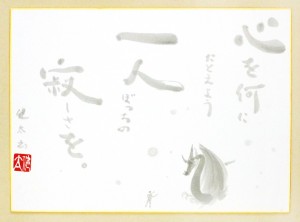 心を何に
たとえよう
一人
ぼっちの
寂しさを。